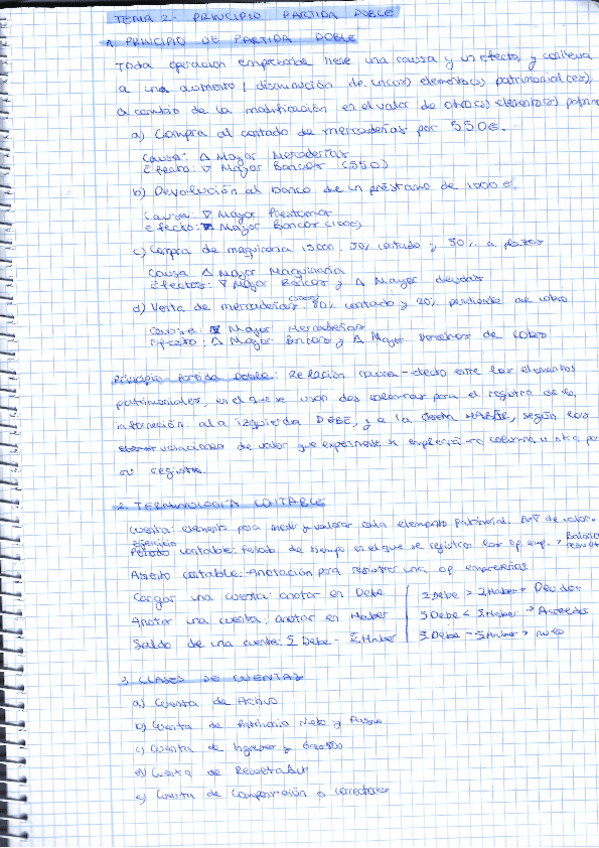 TEMA 2 - PRINCIPIO PARTIDA DOBLE
1. PRINCIPIO DE PARTIDA DOBLE
Toda operación empresarial tiene una causa y un efecto, y conlleva
a un aumento / disminución de un(os) elemento(s) patrimonial(es),
a cambio de la modificación en el valor de otro(s) elemento(s)
a) Compra al contado de mercaderías por 550€.
Causa: Δ Mayor Mercaderías
Efecto: ∇ Mayor Bancos (550)
b) Devolución al banco de un préstamo de 1000 €.
Causa: ∇ Mayor Préstamos
Efecto: ∇ Mayor Bancos (1000)
c) Compra de maquinaria 50% contado y 50% a plazos
Causa Δ Mayor Maquinaria
Efectos: ∇ Mayor Bancos y Δ Mayor deudas
d) Venta de mercaderías: 80% contado y 20% pendiente de cobro
Causa: ∇ Mayor Mercaderías
Efecto: Δ Mayor Bancos y Δ Mayor Derechos de cobro
Principio Partida Doble: Relación causa-efecto entre los elementos
patrimoniales, en el que se usan dos columnas para el registro de la
información a la izquierda DEBE, y a la HABER, según las
variaciones de valor que se columna u otra
su registro.
2. TERMINOLOGÍA CONTABLE
Cuenta: elemento para medir y valorar cada elemento patrimonial. de valor.
Ejercicio
Período contable: Período de tiempo en el que se registran las op. emp. →
Asiento contable: Anotación para registrar una op. empresarial
Cargar una cuenta: anotar en Debe | Σ Debe > Σ Haber → Deudor
Abonar una cuenta: anotar en Haber | Σ Debe < Σ Haber → Acreedor
Saldo de una cuenta: Σ Debe - Σ Haber | Σ Debe - Σ Haber →
3. CLASES DE CUENTAS
a) Cuenta de Activo
b) Cuenta de Patrimonio Neto y Pasivo
c) Cuenta de Ingresos y Gastos
d) Cuenta de Resultados
e) Cuenta de Compensación o correctoras